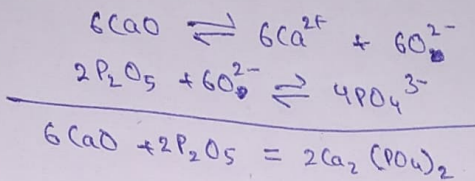 6CaO ⇌ 6Ca²⁺ + 6O²⁻
2P₂O₅ + 6O²⁻ ⇌ 4PO₄³⁻
6CaO + 2P₂O₅ = 2Ca₂(PO₄)₂